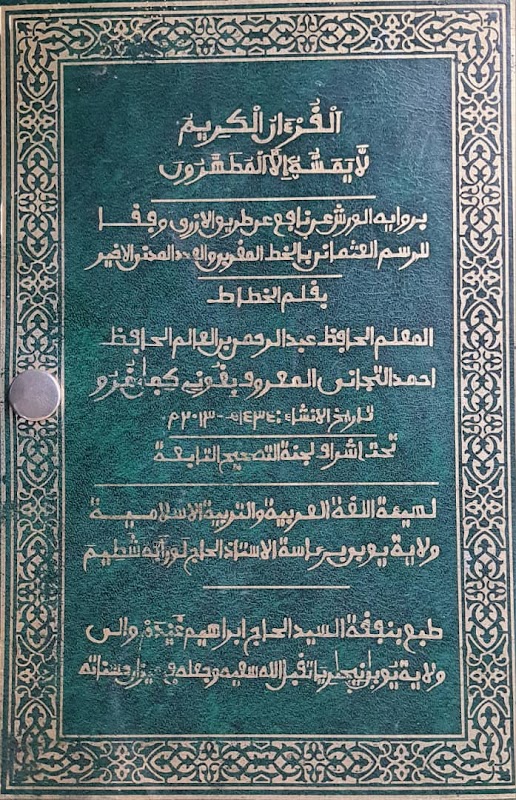 اَلْقُرْءَانُ الْكَرِيمُ
لَّا يَمَسُّهُ إِلَّا اَلْمُطَهَّرُونَ
برواية الورش عن نافع عن طريق الازرق وفقا
للرسم العثماني بالخط المغربي والعدد المدني الاخير
بقلم الخطاط
المعلم الحافظ عبد الرحمن بن العالم الحافظ
احمد التجاني المعروف بغوني
تاريخ الانشاء: ١٤٣٤ه‍-٢٠١٣م
تحت اشراف لجنة التصحيح التابعة
لهيئة اللغة العربية والتربية الاسلامية
ولاية يوبي برئاسة الاستاذ الحاج
طبع بنفقة السيد الحاج ابراهيم غيدم والى
ولاية يوبى نيجيريا تقبل الله سعيه وجعله في ميزان حسناته